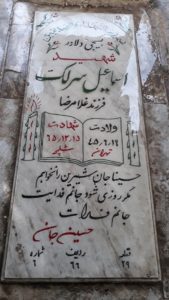 بسیجی دلاور
شهید
اسماعیل سرلک
فرزند غلامرضا
ولادت
۴۵٫۶٫۱۲
تهران
شهادت
۶۵٫۱۲٫۱۵
شلمچه
حسینا جان شیرین را نخواهم
مگر روزی شود جانم فدایت
جانم فدات
حسین جان
قطعه ۲۹
ردیف ۶۶
شماره ۶